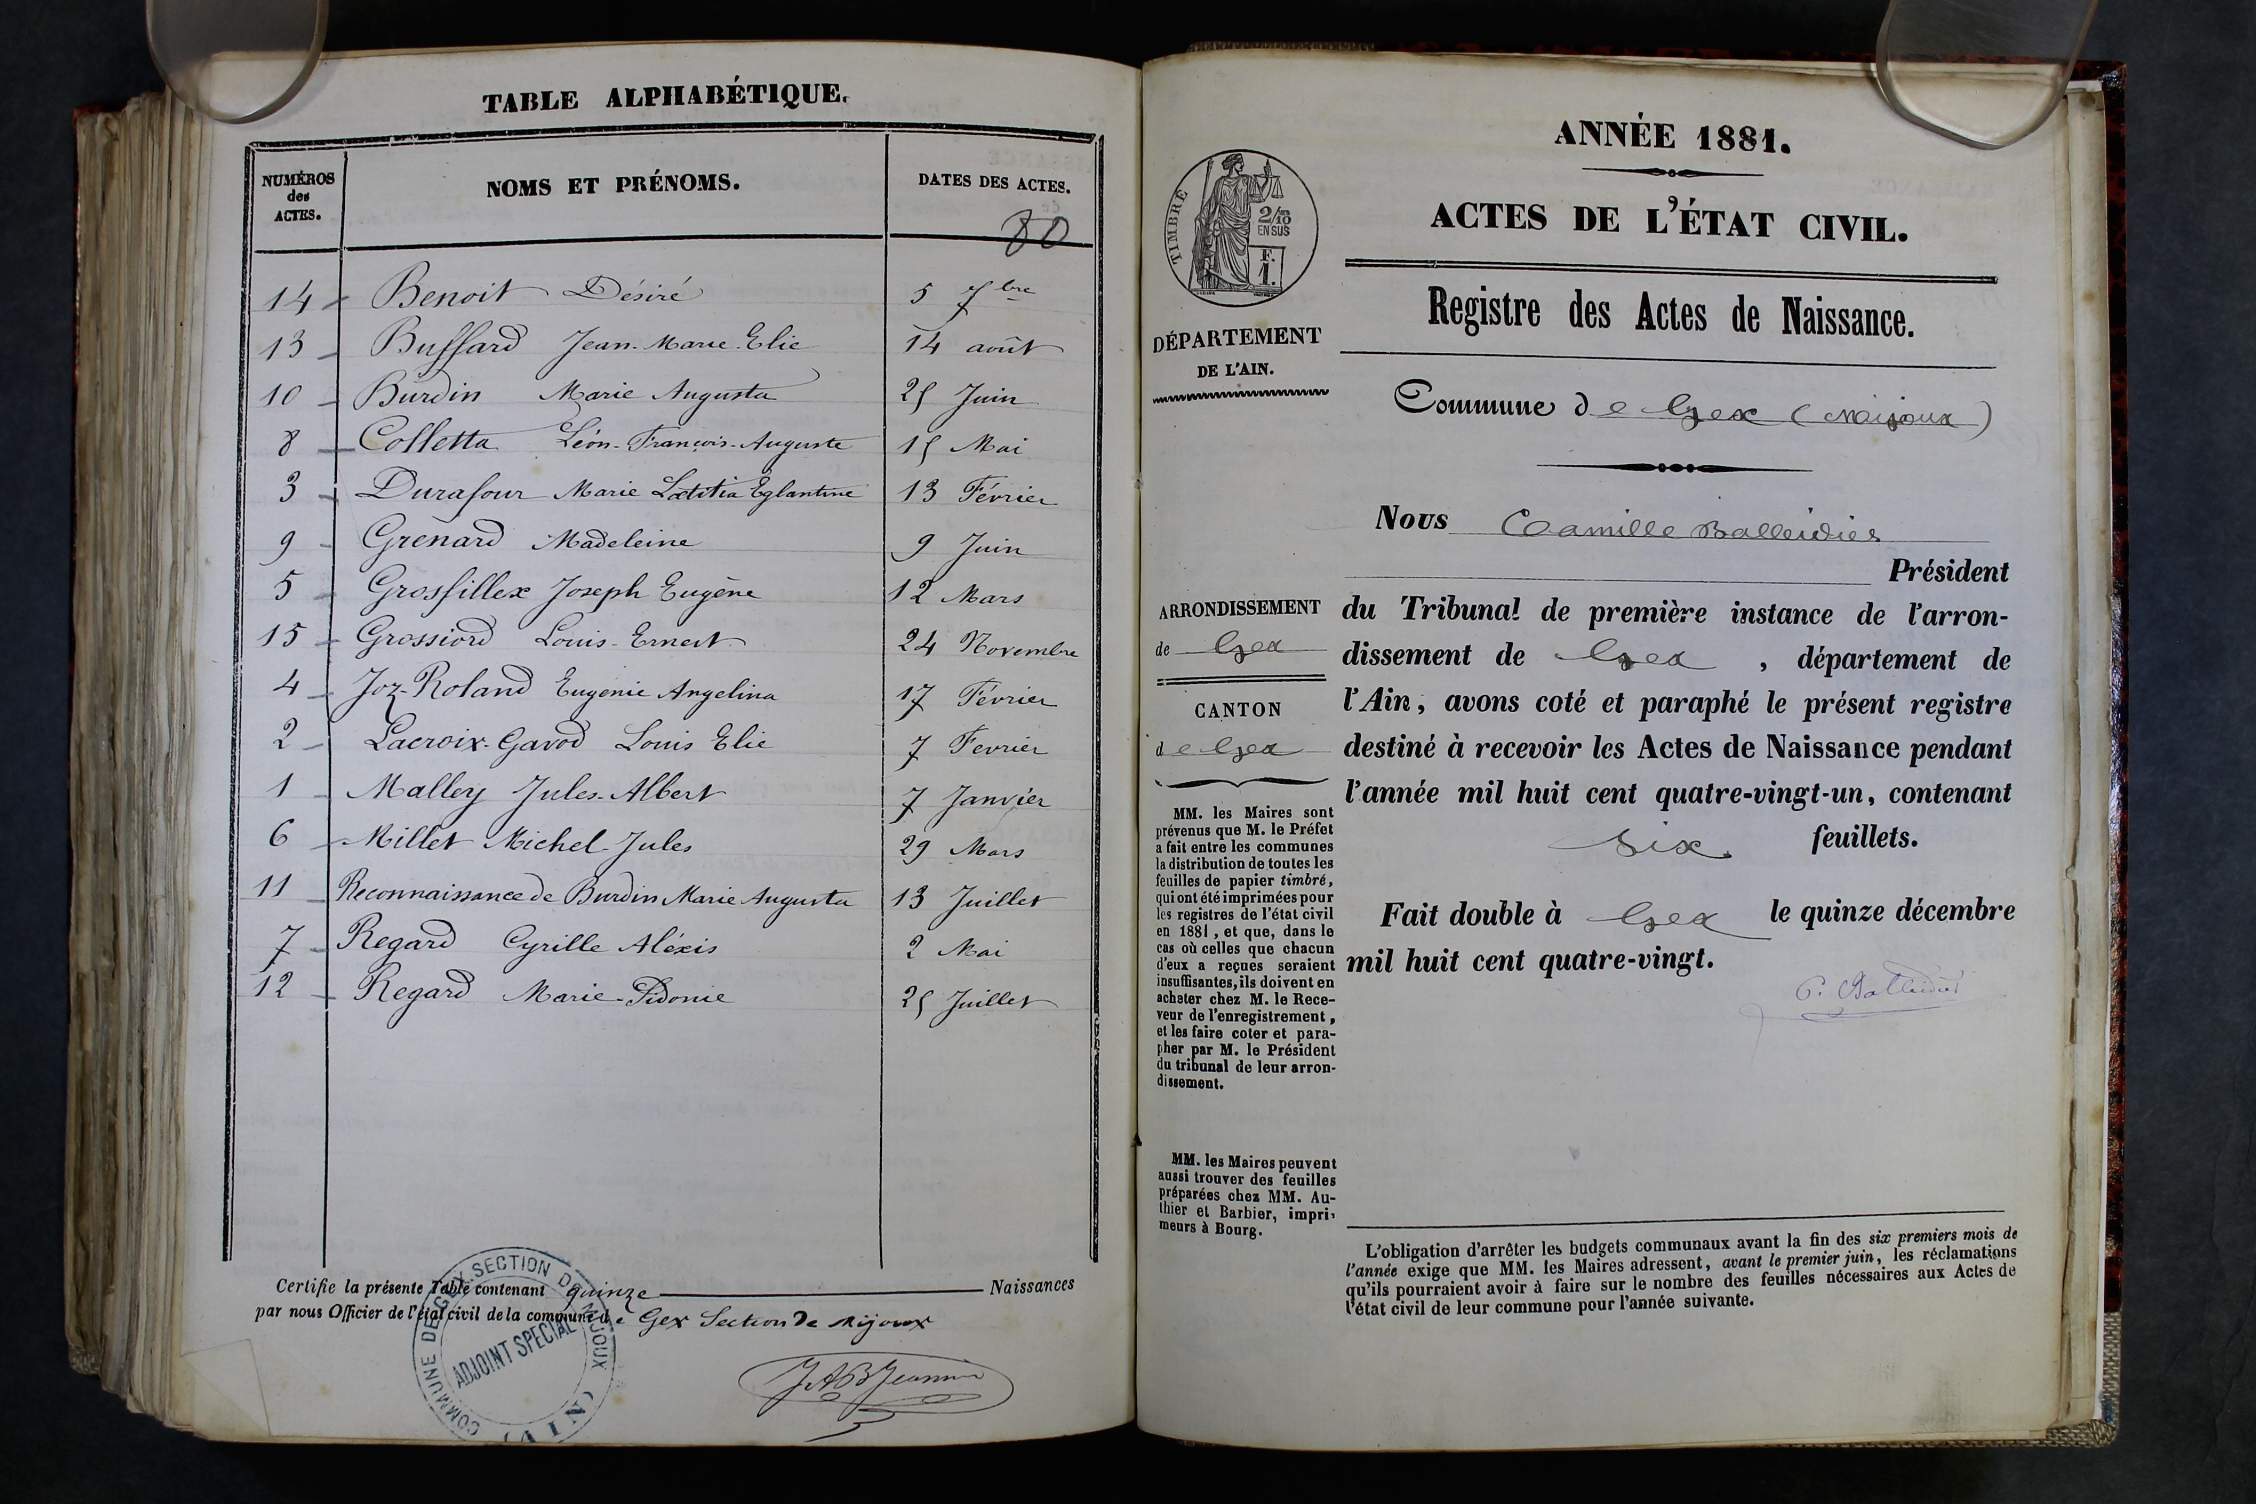 TABLE ALPHABÉTIQUE.
NUMÉROS
des
ACTES.
NOMS ET PRÉNOMS.
DATES DES ACTES.
80
14 Benoit Désiré 5 7bre
13 Buffard Jean-Marie-Elie 14 août
10 Burdin Marie Augusta 25 Juin
8 Colletta Léon-François-Auguste 15 Mai
3 Durafour Marie Lœtitia Eglantine 13 Février
9 Grenard Madeleine 9 Juin
5 Grosfillex Joseph Eugène 12 Mars
15 Grossiord Louis-Ernest 24 Novembre
4 Joz-Roland Eugenie Angelina 17 Février
2 Lacroix-Gavod Louis Elie 7 Fevrier
1 Malley Jules-Albert 7 Janvier
6 Millet Michel-Jules 29 Mars
11 Reconnaissance de Burdin Marie Augusta 13 Juillet
7 Regard Cyrille Aléxis 2 Mai
12 Regard Marie-Sidonie 25 Juillet
Certifie la présente Table contenant quinze Naissances
par nous Officier de l'état civil de la commune de Gex Section de Mijoux
COMMUNE DE GEX. SECTION DE MIJOUX
ADJOINT SPECIAL
(AIN)
JAB Jeannin
ANNÉE 1881.
ACTES DE L'ÉTAT CIVIL.
TIMBRE
2/10
EN SUS
F.
1.
DÉPARTEMENT
DE L'AIN.
Registre des Actes de Naissance.
Commune de Gex (Mijoux)
Nous Camille Balleidier
Président
du Tribunal de première instance de l'arron-
dissement de Gex, département de
l'Ain, avons coté et paraphé le présent registre
destiné à recevoir les Actes de Naissance pendant
l'année mil huit cent quatre-vingt-un, contenant
six feuillets.
Fait double à Gex le quinze décembre
mil huit cent quatre-vingt.
C. Balleidier
ARRONDISSEMENT
de Gex
CANTON
de Gex
MM. les Maires sont
prévenus que M. le Préfet
a fait entre les communes
la distribution de toutes les
feuilles de papier timbré,
qui ont été imprimées pour
les registres de l'état civil
en 1881, et que, dans le
cas où celles que chacun
d'eux a reçues seraient
insuffisantes, ils doivent en
acheter chez M. le Rece-
veur de l'enregistrement,
et les faire coter et para-
pher par M. le Président
du tribunal de leur arron-
dissement.
MM. les Maires peuvent
aussi trouver des feuilles
préparées chez MM. Au-
thier et Barbier, impri-
meurs à Bourg.
L'obligation d'arrêter les budgets communaux avant la fin des six premiers mois de
l'année exige que MM. les Maires adressent, avant le premier juin, les réclamations
qu'ils pourraient avoir à faire sur le nombre des feuilles nécessaires aux Actes de
l'état civil de leur commune pour l'année suivante.